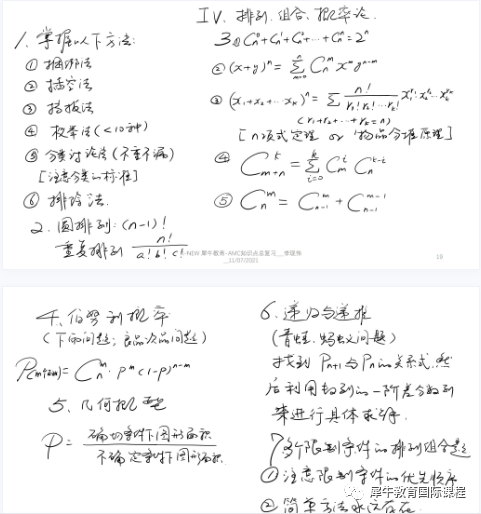 IV. 排列.组合.概率论.
1. 掌握以下方法:
① 捆绑法
② 插空法
③ 挡板法
④ 枚举法(<10种)
⑤ 分类讨论法(不重不漏)
[注意分类的标准]
⑥ 排除法.
2. 圆排列: (n-1)!
重复排列 n!/(a!b!c!)
3. ① C_n^0+C_n^1+C_n^2+…+C_n^n=2^n
② (x+y)^n = Σ_{m=0}^{n} C_n^m x^m y^{n-m}
③ (x_1+x_2+…x_k)^n = Σ n!/(r_1!r_2!…r_k!) x_1^{r_1} x_2^{r_2}…x_k^{r_k}
(r_1+r_2+…+r_k=n)
[n项式定理 or 物品分堆原理]
④ C_{m+n}^k = Σ_{i=0}^{k} C_m^i C_n^{k-i}
⑤ C_n^m = C_{n-1}^m + C_{n-1}^{m-1}
NEW 犀牛教育-AMC知识点总复习__李琛伟
__11/07/2021
19
4. 伯努利概率
(下雨问题; 良品次品问题)
= C_n^m · p^m (1-p)^{n-m}
5. 几何概型
P = 确切事件下图形面积/不确定事件下图形面积
6. 递归与递推
(青蛙. 蚂蚁问题)
找到 P_{n+1} 与 P_n 的关系式, 然
后利用数列的一阶差分数列
来进行具体求解.
7 多限制条件的排列组合题
① 注意限制条件的优先顺序
② 简单方法永远存在.
犀牛教育国际课程